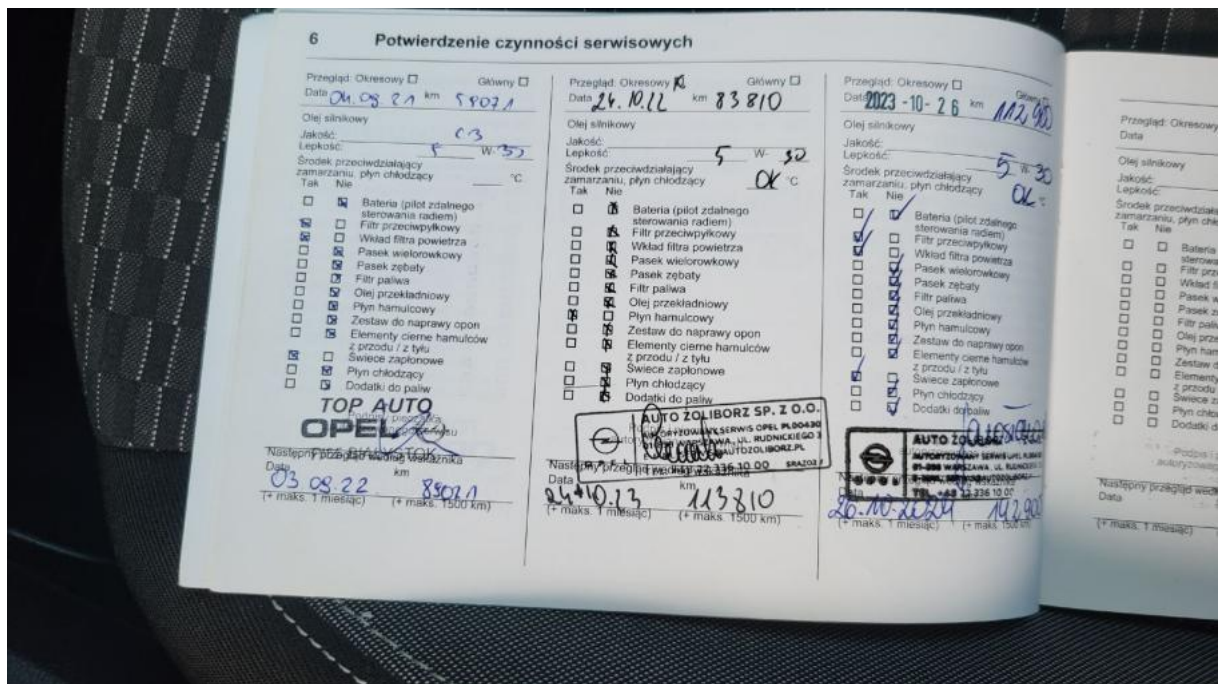 6 Potwierdzenie czynności serwisowych
Przegląd: Okresowy Główny
Data 04.09 21 km 59071
Olej silnikowy
Jakość: C3
Lepkość: 5 W- 30
Środek przeciwdziałający
zamarzaniu, płyn chłodzący °C
Tak Nie
Bateria (pilot zdalnego
sterowania radiem)
Filtr przeciwpyłkowy
Wkład filtra powietrza
Pasek wielorowkowy
Pasek zębaty
Filtr paliwa
Olej przekładniowy
Płyn hamulcowy
Zestaw do naprawy opon
Elementy cierne hamulców
z przodu / z tyłu
Świece zapłonowe
Płyn chłodzący
Dodatki do paliw
TOP AUTO
OPEL
Następny przegląd według wskaźnika
Data km
03 09.22 89071
(+ maks. 1 miesiąc) (+ maks. 1500 km)
Przegląd: Okresowy Główny
Data 24.10.22 km 83810
Olej silnikowy
Jakość:
Lepkość: 5 W- 30
Środek przeciwdziałający
zamarzaniu, płyn chłodzący OK °C
Tak Nie
Bateria (pilot zdalnego
sterowania radiem)
Filtr przeciwpyłkowy
Wkład filtra powietrza
Pasek wielorowkowy
Pasek zębaty
Filtr paliwa
Olej przekładniowy
Płyn hamulcowy
Zestaw do naprawy opon
Elementy cierne hamulców
z przodu / z tyłu
Świece zapłonowe
Płyn chłodzący
Dodatki do paliw
AUTO ŻOLIBORZ SP. Z O.O.
SERWIS OPEL PL00430
WARSZAWA, UL. RUDNICKIEGO 3
OPEL 22 336 10 00
Następny przegląd
Data km
24.10.23 113810
(+ maks. 1 miesiąc) (+ maks. 1500 km)
Przegląd: Okresowy Główny
Data 2023 -10- 26 km 112,900
Olej silnikowy
Jakość:
Lepkość: 5 W- 30
Środek przeciwdziałający
zamarzaniu, płyn chłodzący OK °C
Tak Nie
Bateria (pilot zdalnego
sterowania radiem)
Filtr przeciwpyłkowy
Wkład filtra powietrza
Pasek wielorowkowy
Pasek zębaty
Filtr paliwa
Olej przekładniowy
Płyn hamulcowy
Zestaw do naprawy opon
Elementy cierne hamulców
z przodu / z tyłu
Świece zapłonowe
Płyn chłodzący
Dodatki do paliw
AUTO
AUTORYZOWANY SERWIS
WARSZAWA, UL.
OPEL TEL. +48 22 336 10 00
Data
26.10.2024 142,900
(+ maks. 1 miesiąc) (+ maks. 1500 km)
Przegląd: Okresowy
Data
Olej silnikowy
Jakość:
Lepkość:
Środek
zamarzaniu, płyn
Tak Nie
Bateria
Filtr
Wkład
Pasek
Pasek
Filtr
Olej
Płyn
Zestaw
Elementy
z przodu
Świece
Płyn
Dodatki
Następny przegląd
Data
(+ maks. 1 miesiąc)